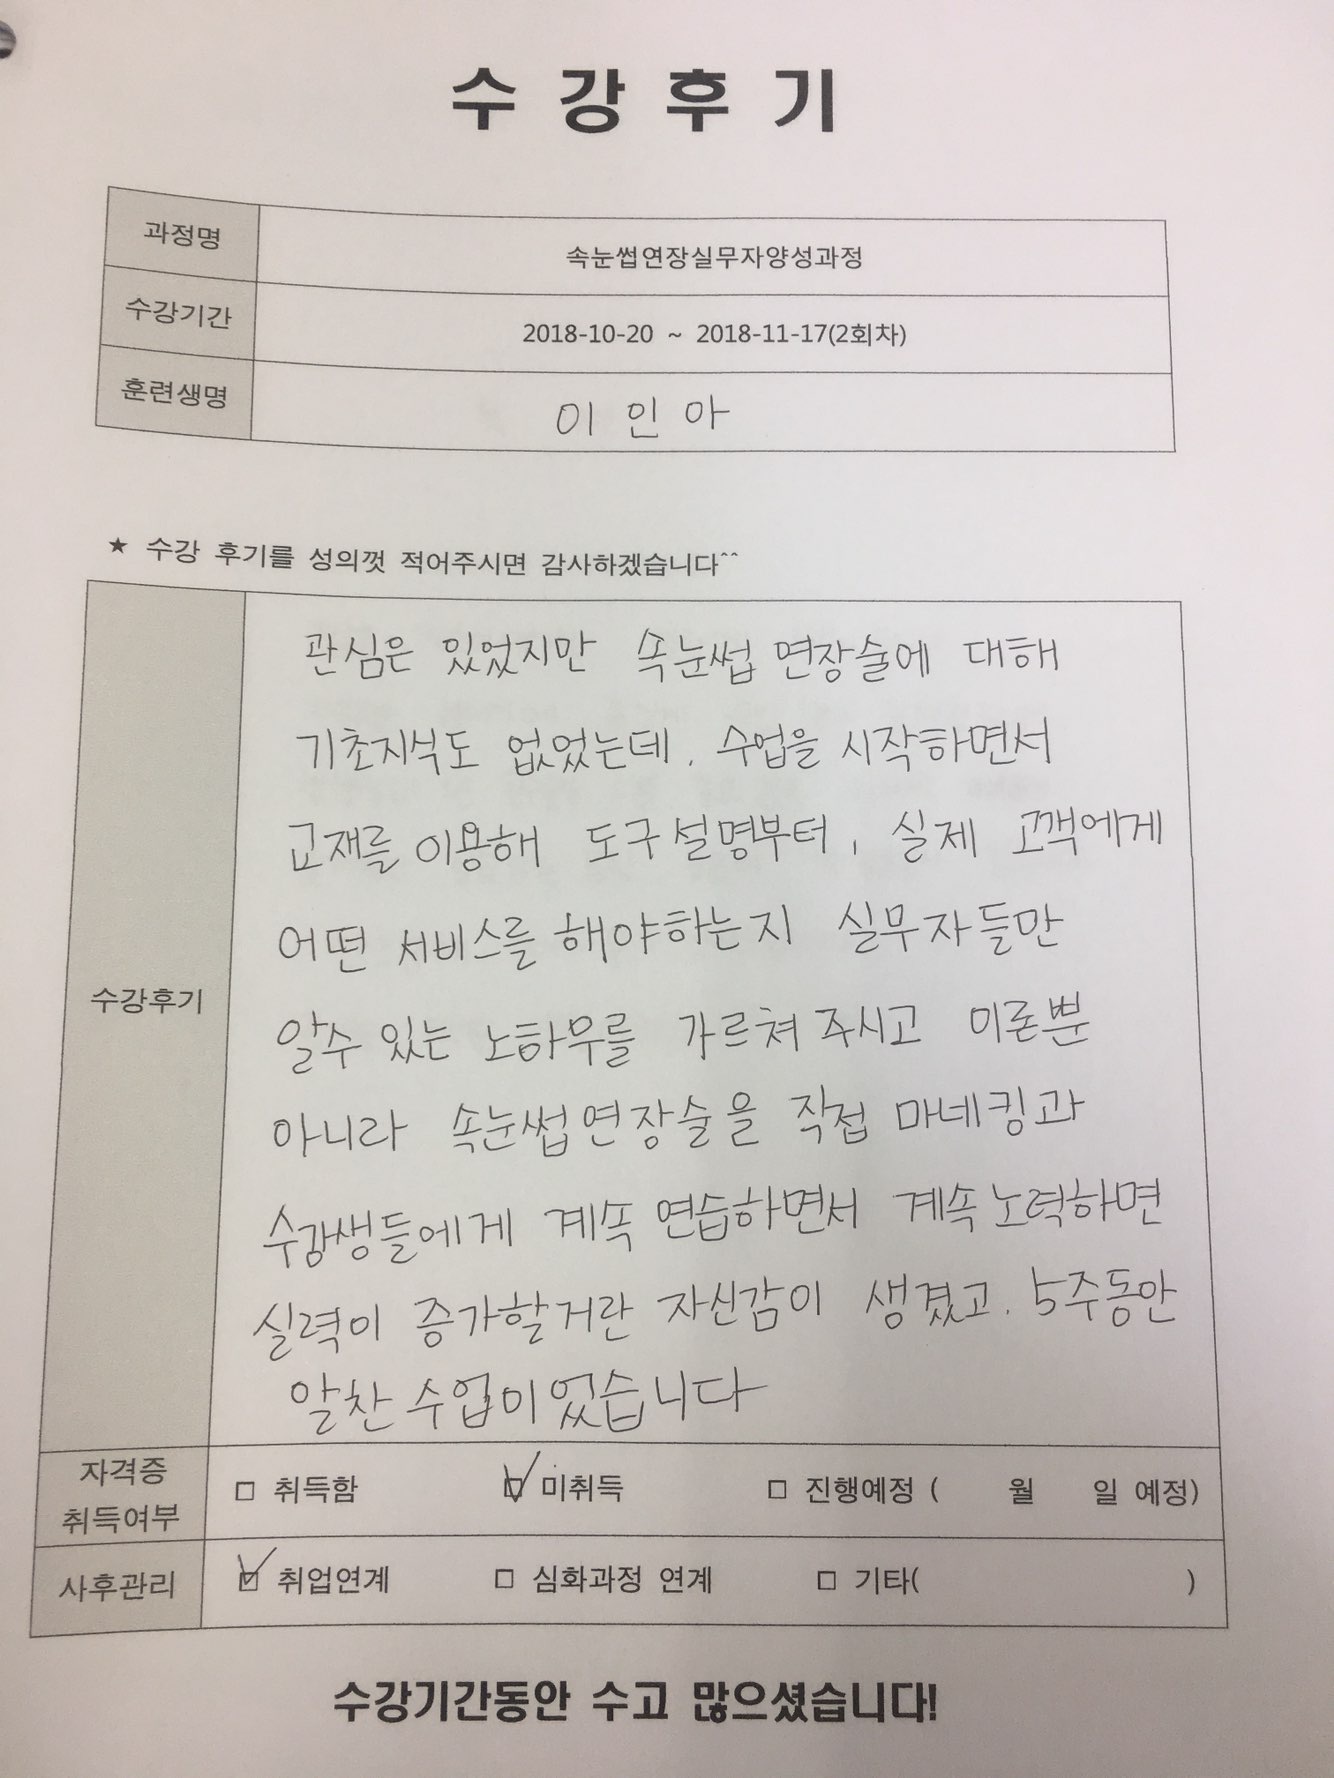 수강후기
과정명 속눈썹연장실무자양성과정
수강기간 2018-10-20 ~ 2018-11-17(2회차)
훈련생명 이인아
★ 수강 후기를 성의껏 적어주시면 감사하겠습니다^^
수강후기
관심은 있었지만 속눈썹 연장술에 대해
기초지식도 없었는데. 수업을 시작하면서
교재를 이용해 도구설명부터, 실제 고객에게
어떤 서비스를 해야하는지 실무자들만
알수 있는 노하우를 가르쳐 주시고 이론뿐
아니라 속눈썹연장술을 직접 마네킹과
수강생들에게 계속 연습하면서 계속노력하면
실력이 증가할거란 자신감이 생겼고. 5주동안
알찬 수업이었습니다
자격증 취득여부 □ 취득함 ☑ 미취득 □ 진행예정 ( 월 일 예정)
사후관리 ☑ 취업연계 □ 심화과정 연계 □ 기타( )
수강기간동안 수고 많으셨습니다!